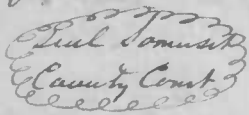 Seal Somerset
County Court